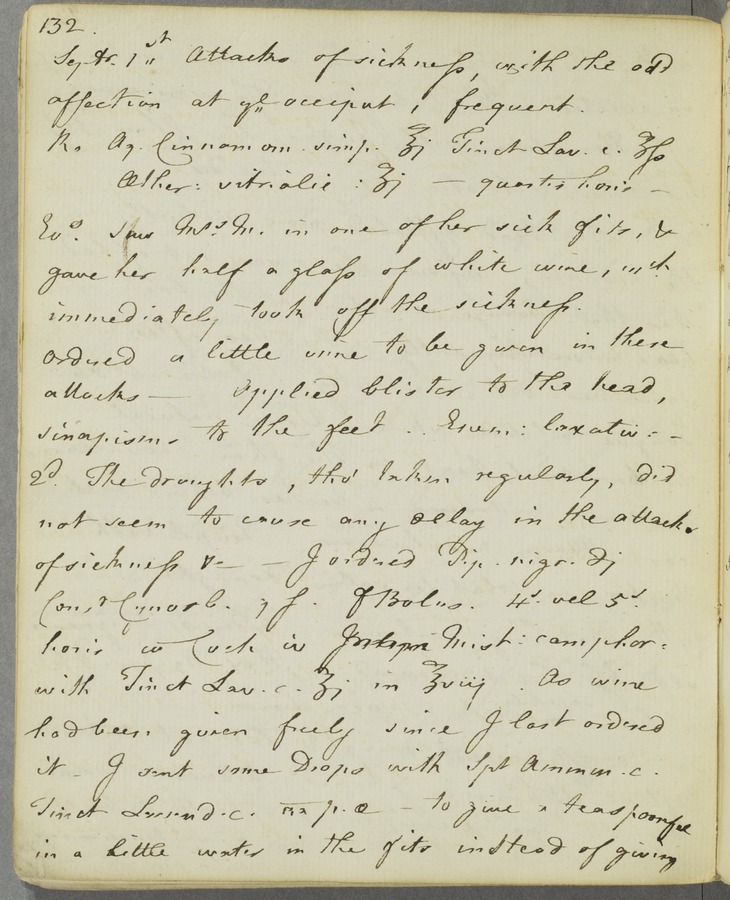 132.
Septr. 1st Attacks of sickness, with the odd
affection at ye occiput, frequent.
Rx Aq. Cinnamom. simp. ʒj Tinct Lav. c. ʒſs
Æther: vitriolic: ʒj — quartis horis —
Evg. saw Mrs M. in one of her sick fits, &
gave her half a glass of white wine, wch
immediately took off the sickness.
Ordered a little wine to be given in these
attacks — Applied blister to the head,
sinapisms to the feet .. Enem: laxativ: -
2d. The draughts, tho' taken regularly, did
not seem to cause any delay in the attacks
of sickness &c — I ordered Pip. nigr. ℈j
Cons. Cynosb. q s. f Bolus. 4s. vel 5s.
horis cum Coch iv Mist: camphor:
with Tinct Lav. c. ʒj in ℥viij. As wine
had been given freely since I last ordered
it - I sent some Drops with Spt Ammon. c.
Tinct Lavend. c. aa p. æ - to give a teaspoonful
in a little water in the fits instead of giving